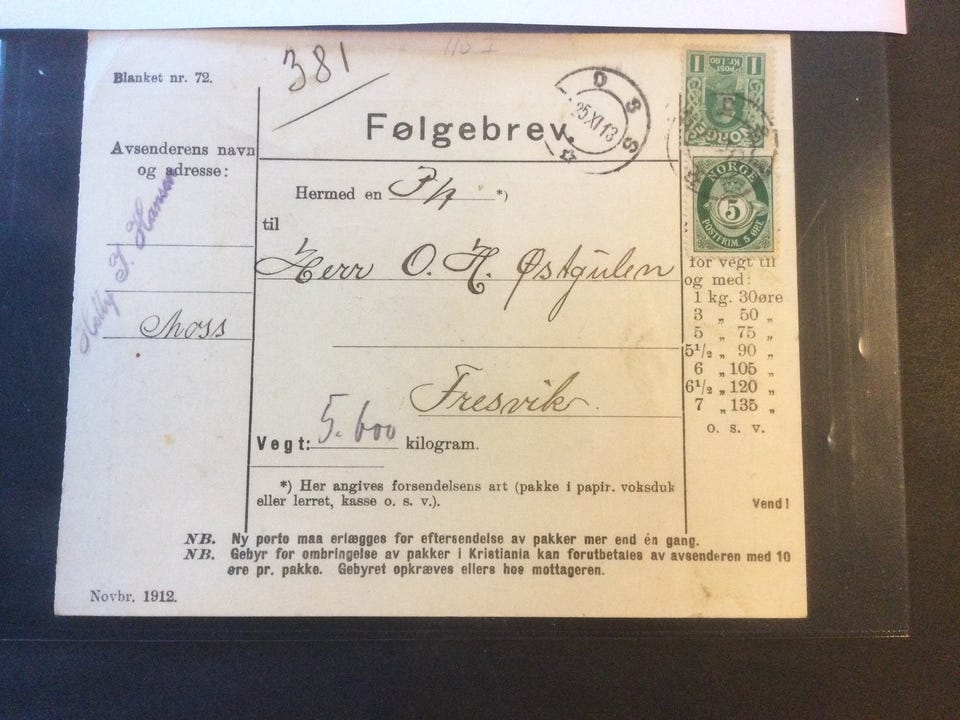 110 I
381
Blanket nr. 72.
Følgebrev.
OSS
25 XI 13
1 POST 1
Kr. 1.00
NORGE
NORGE
5
POSTFRIM. 5 ØRE
Avsenderens navn
og adresse:
J. Hansen
Moss
Hermed en P/q *)
til
Herr O. H. Østgulen
Fresvik.
Vegt: 5.600 kilogram.
for vegt til
og med:
1 kg. 30øre
3 „ 50 „
5 „ 75 „
5½ „ 90 „
6 „ 105 „
6½ „ 120 „
7 „ 135 „
o. s. v.
*) Her angives forsendelsens art (pakke i papir. voksduk
eller lerret, kasse o. s. v.).
Vend!
NB. Ny porto maa erlægges for eftersendelse av pakker mer end én gang.
NB. Gebyr for ombringelse av pakker i Kristiania kan forutbetales av avsenderen med 10
øre pr. pakke. Gebyret opkræves ellers hos mottageren.
Novbr. 1912.